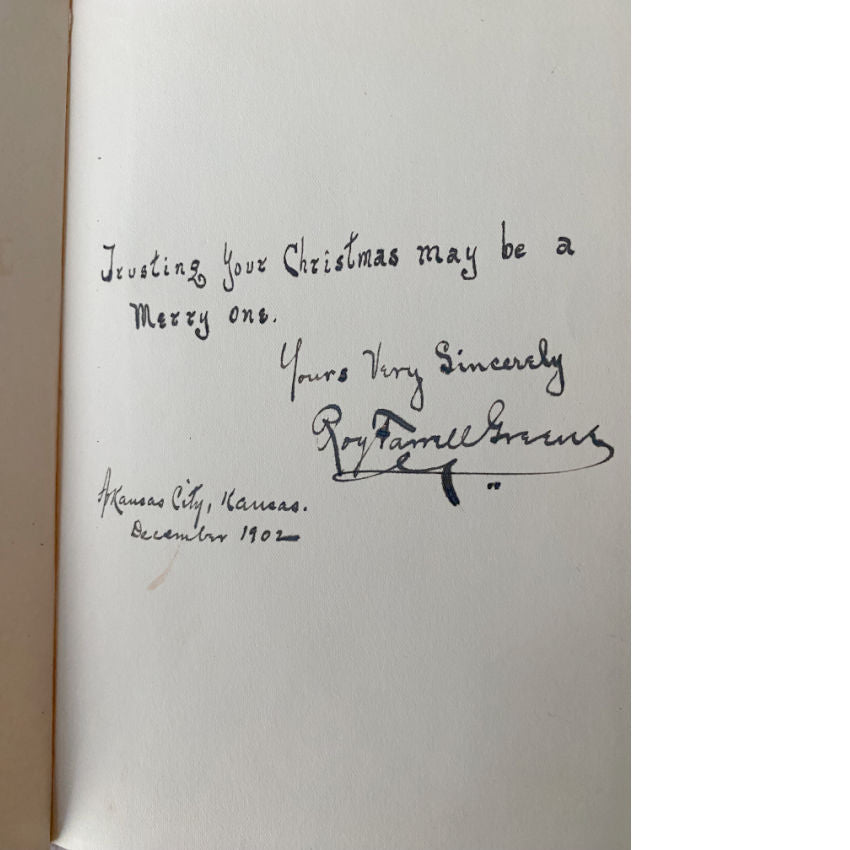 Trusting Your Christmas may be a
Merry one.
Yours Very Sincerely
Roy Farrell Greene
Arkansas City, Kansas.
December 1902